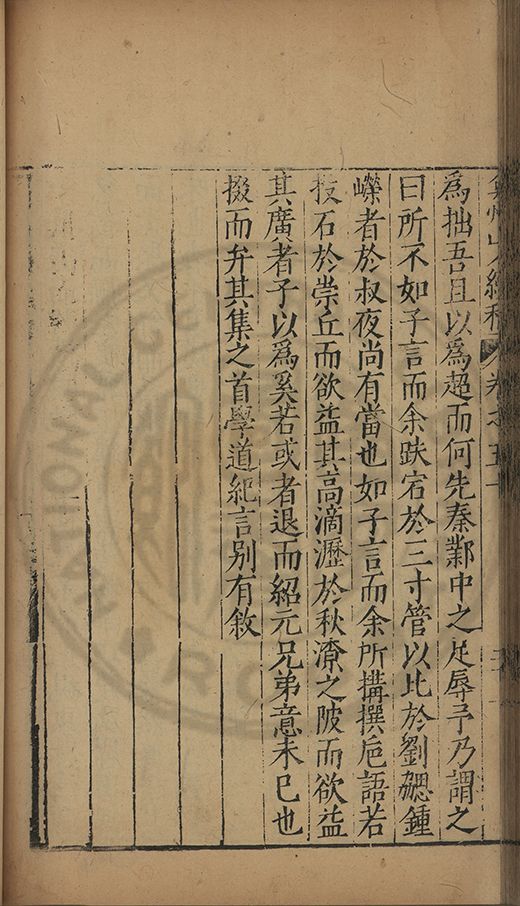 弇州山人續稿 卷之五十
爲拙吾且以爲超而何先秦鄴中之足辱乎乃謂之
曰所不如子言而余跌宕於三寸管以比於劉勰鍾
嶸者於叔夜尚有當也如子言而余所搆撰巵語若
投石於崇丘而欲益其高滴瀝於秋潦之陂而欲益
其廣者子以爲奚若或者退而紹元兄弟意未已也
掇而弁其集之首學道紀言別有敘